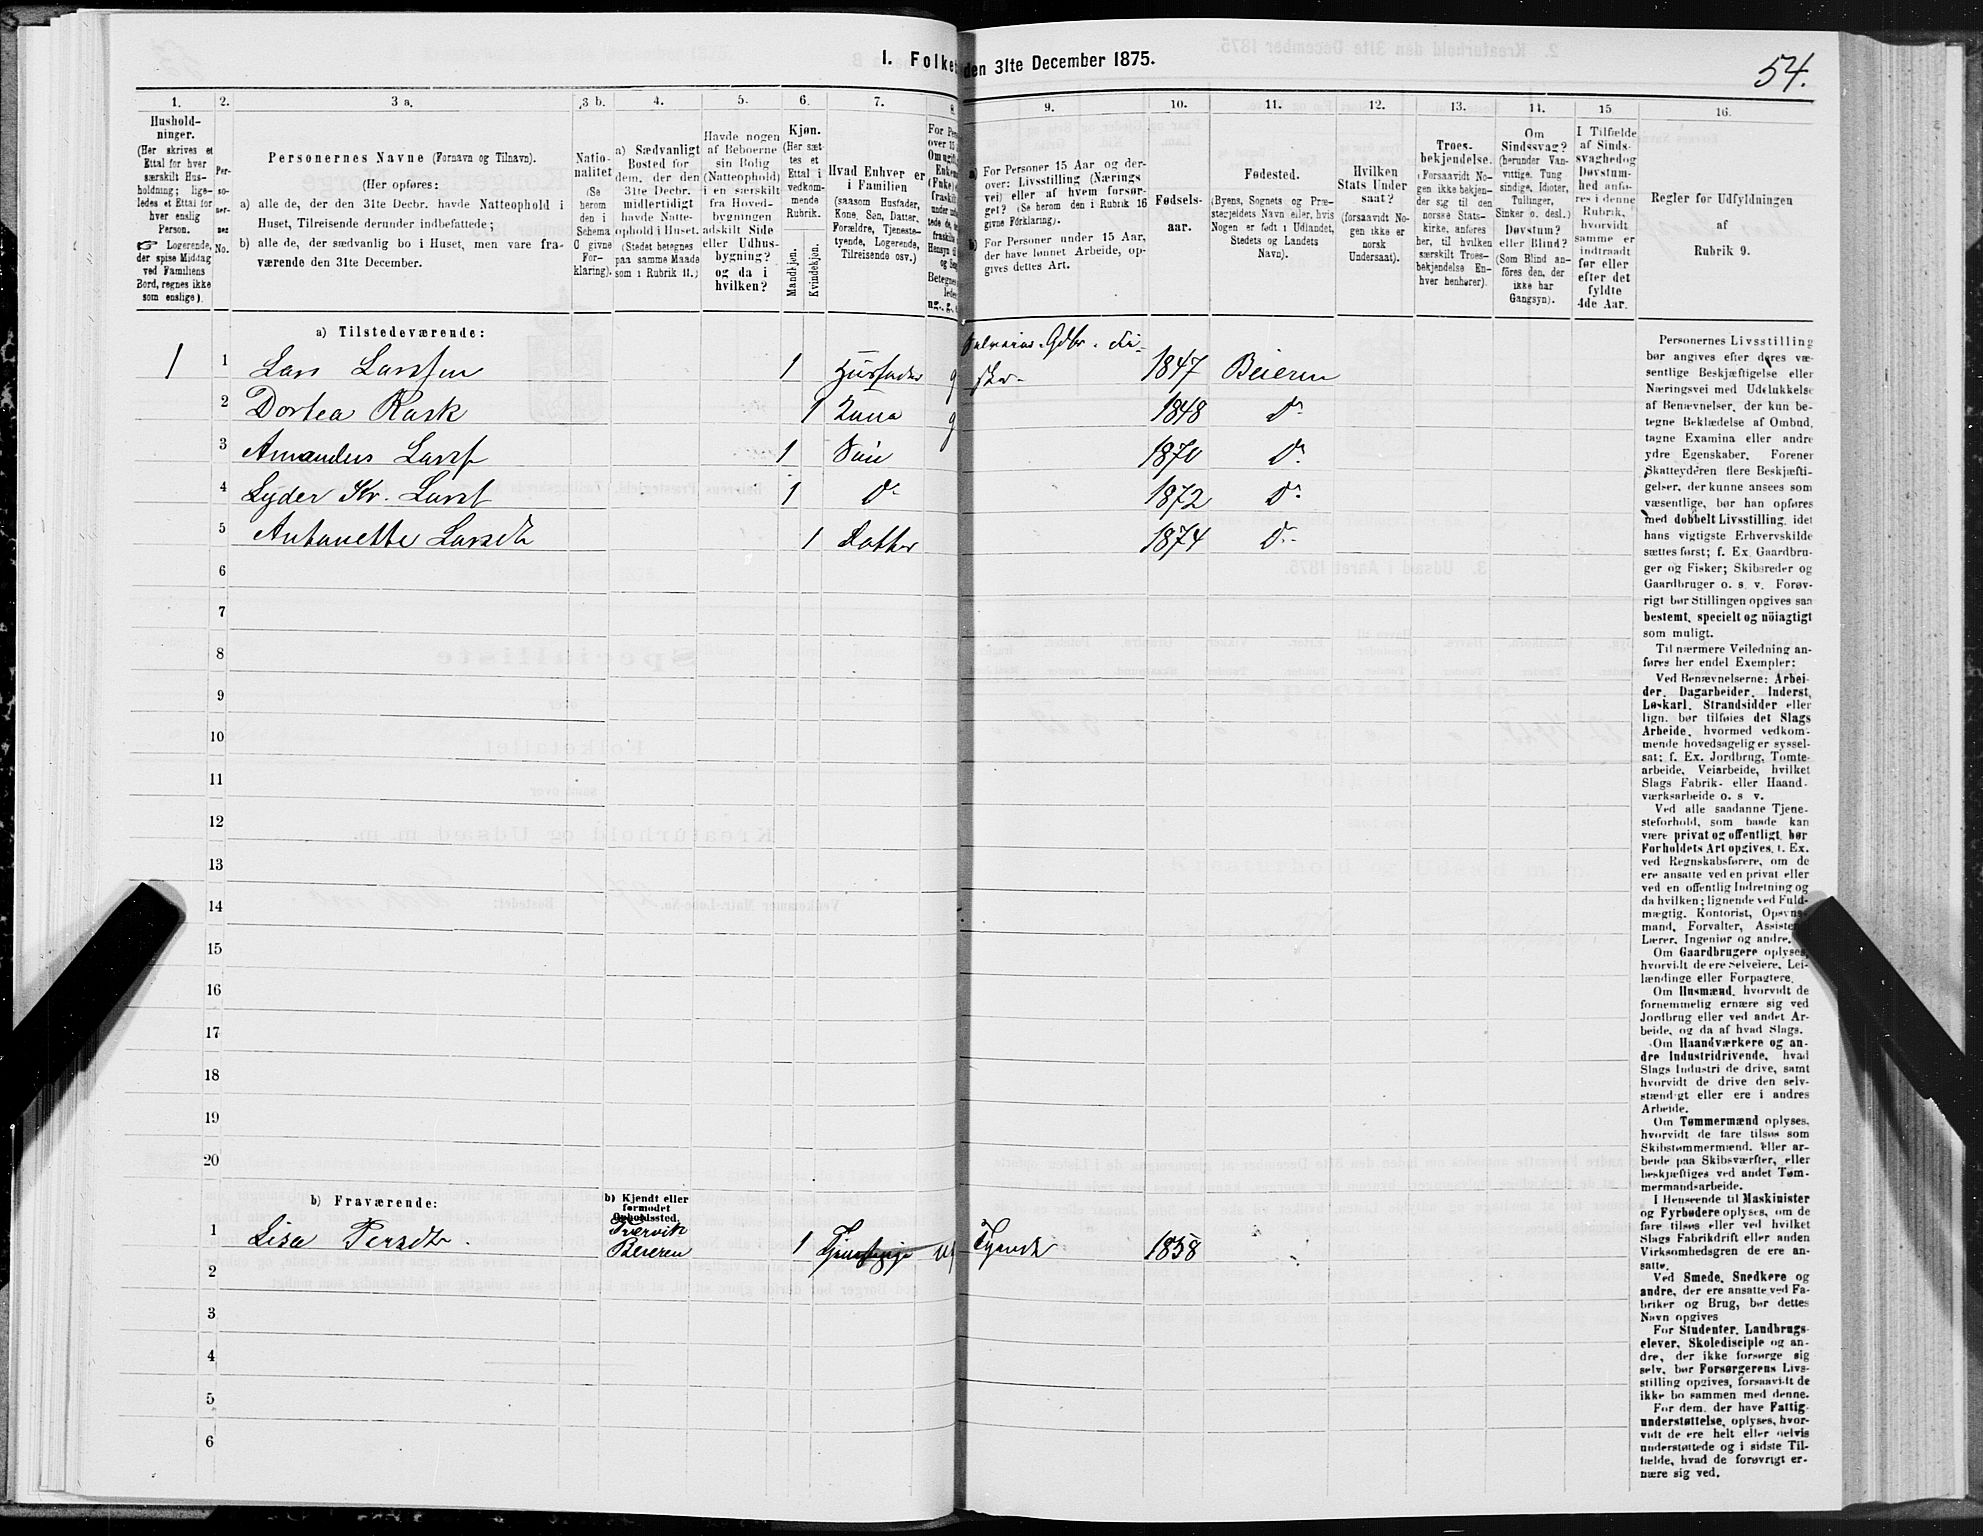 1. Folke den 31te December 1875.
54.
1.
Hushold-
ninger.
(Her skrives et
Ettal for hver
særskilt Hus-
holdning; lige-
ledes et Ettal for
hver enslig
Person.
☞ Logerende,
der spise Middag
ved Familiens
Bord, regnes ikke
som enslige).
2.
Per-
so-
ner-
nes
No.
3 a.
Personernes Navne (Fornavn og Tilnavn).
(Her opføres:
a) alle de, der den 31te Decbr. havde Natteophold i
Huset, Tilreisende derunder indbefattede;
b) alle de, der sædvanlig bo i Huset, men vare fra-
værende den 31te December.
3 b.
Natio-
nalitet
(Se
herom
den i
Schema
O givne
For-
klaring).
4.
a) Sædvanligt
Bosted for
dem, der den
31te Decbr.
midlertidigt
havde Natte-
ophold i Huset.
(Stedet betegnes
paa samme Maade
som i Rubrik 11.)
5.
Havde nogen
af Beboerne
sin Bolig
(Natteophold)
i en særskilt
fra Hoved-
bygningen
adskilt Side
eller Udhus-
bygning?
og da i
hvilken?
6.
Kjøn.
(Her sæt-
tes et
Ettal i
vedkom-
mende
Rubrik.
Mandkjøn.
Kvindekjøn.
7.
Hvad Enhver er
i Familien
(saasom Husfader,
Kone, Søn, Datter,
Forældre, Tjeneste-
tyende, Logerende,
Tilreisende osv.)
8.
For Pe
over 15
Om ugift,
Enkem
(Fuke)
fraskilt
9.
a) For Personer 15 Aar og der-
over: Livsstilling (Nærings
vei) eller af hvem forsør-
get? (Se herom de i Rubrik 16
givne Förklaring).
b) For Personer under 15 Aar,
der have lønnet Arbeide, op-
gives dettes Art.
10.
Fødsels-
aar.
11.
Fødested.
(Byens, Sognets og Præ-
stegjeldets Navn eller, hvis
Nogen er født i Udlandet,
Stedets og Landets
Navn).
12.
Hvilken
Stats Under
saat?
(forsaavidt No-
gen ikke er
norsk
Undersaat).
13.
Troes-
bekjendelse.
(Forsaavidt No-
gen ikke bekjen-
der sig til den
norske Stats-
kirke, anføres
her, til hvilken
særskilt Troes-
bekjendelse En-
hver henhører).
14.
Om
Sindssvag?
(herunder Van-
vittige, Tung
sindige, Idioter,
Tullinger,
Sinker o. desl.)
Døvstum?
eller Blind?
(Som Blind an-
föres den, der
ikke har
Gangsyn).
15
I Tilfælde
af Sinds-
svaghed og
Døvstum-
hed anfø-
res i denne
Rubrik,
hvorvidt
samme er
indtraadt
før eller
efter det
fyldte
4de Aar.
16.
Regler for Udfyldningen
af
Rubrik 9.
a) Tilstedeværende:
Selveier. Gdbr. Fi-
1 1 Lars Larssen 1 Husfader g sker 1847 Beieren
2 Dortea Rask 1 Kona g 1848 Do
3 Amandus Larss 1 Søn 1870 Do
4 Lyder Kr. Larss 1 Do 1872 Do
5 Antonette Larsdt 1 Datter 1874 Do
6
7
8
9
10
11
12
13
14
15
16
17
18
19
20
b) Fraværende:
b) Kjendt eller
formodet
Opholdssted.
Tvervik
1 Lisa Persdtr. Beieren 1 ug Tyende 1858
2
3
4
5
6
Personernes Livsstilling
bør angives efter deres væ-
sentlige Beskjæftigelse eller
Næringsvei med Udelukkelse
af Benævnelser, der kun be-
tegne Beklædelse af Ombud,
tagne Examina eller andre
ydre Egenskaber. Forener
Skatteyderen flere Beskjæfti-
gelser, der kunne ansees som
væsentlige, bør han opføres
med dobbelt Livsstilling, idet
hans vigtigste Erhvervskilde
sættes først; f. Ex. Gaardbru-
ger og Fisker; Skibsreder og
Gaardbruger o. s. v. Forøv-
rigt bør Stillingen opgives saa
bestemt, specielt og nöiagtigt
som muligt.
Til nærmere Veiledning an-
føres her endel Exempler:
Ved Benævnelserne: Arbei-
der, Dagarbeider, Inderst,
Løskarl, Strandsidder eller
lign. bør tilføies det Slags
Arbeide, hvormed vedkom-
mende hovedsagelig er syssel-
sat; f. Ex. Jordbrug, Tomte-
arbeide, Veiarbeide, hvilket
Slags Fabrik- eller Haand-
værksarbeide o. s. v.
Ved alle saadanne Tjene-
steforhold, som baade kan
være privat og offentligt, bør
Forholdets Art opgives, f. Ex.
ved Regnskabsførere, om de
ere ansatte ved en privat eller
ved en offentlig Indretning og
da hvilken; lignende ved Fuld-
mægtig, Kontorist, Opsyns-
mand, Forvalter, Assistent,
Lærer, Ingeniør og andre.
Om Gaardbrugere oplyses,
hvorvidt de ere Selveiere, Lei-
lændinge eller Forpagtere.
Om Husmænd, hvorvidt de
fornemmelig ernære sig ved
Jordbrug eller ved andet Ar-
beide, og da af hvad Slags.
Om Haandværkere og an-
dre Industridrivende, hvad
Slags Industri de drive, samt
hvorvidt de drive den selv-
stændigt eller ere i andres
Arbeide.
Om Tømmermænd oplyses,
hvorvidt de fare tilsøs som
Skibstømmermænd, eller ar-
beide paa Skibsværfter, eller
beskjæftiges ved andet Tøm-
mermandsarbeide.
I Henseende til Maskinister
og Fyrbødere oplyses, om de
fare tilsøs eller ved hvilket
Slags Fabrikdrift eller anden
Virksomhedsgren de ere an-
satte.
Ved Smede, Snedkere og
andre, der ere ansatte ved Fa-
briker og Brug, bør dettes
Navn opgives
For Studenter, Landbrugs-
elever, Skoledisciple og an-
dre, der ikke forsørge sig
selv, bør Forsørgerens Livs-
stilling opgives, forsaavidt de
ikke bo sammen med denne.
For dem, der have Fattig-
understøttelse, oplyses, hvor-
vidt de ere helt eller delvis
understøttede og i sidste Til-
fælde, hvad de forøvrigt er-
nære sig ved.